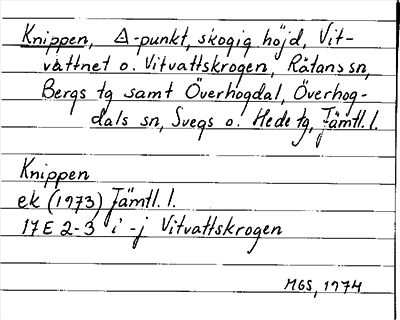 Knippen, △-punkt, skogig höjd, Vit-
vattnet o. Vitvattskrogen, Rätans sn,
Bergs tg samt Överhogdal, Överhog-
dals sn, Svegs o. Hede tg, Jämtl. l.
Knippen
ek (1973) Jämtl. l.
17E 2-3 i-j Vitvattskrogen
MGS, 1974